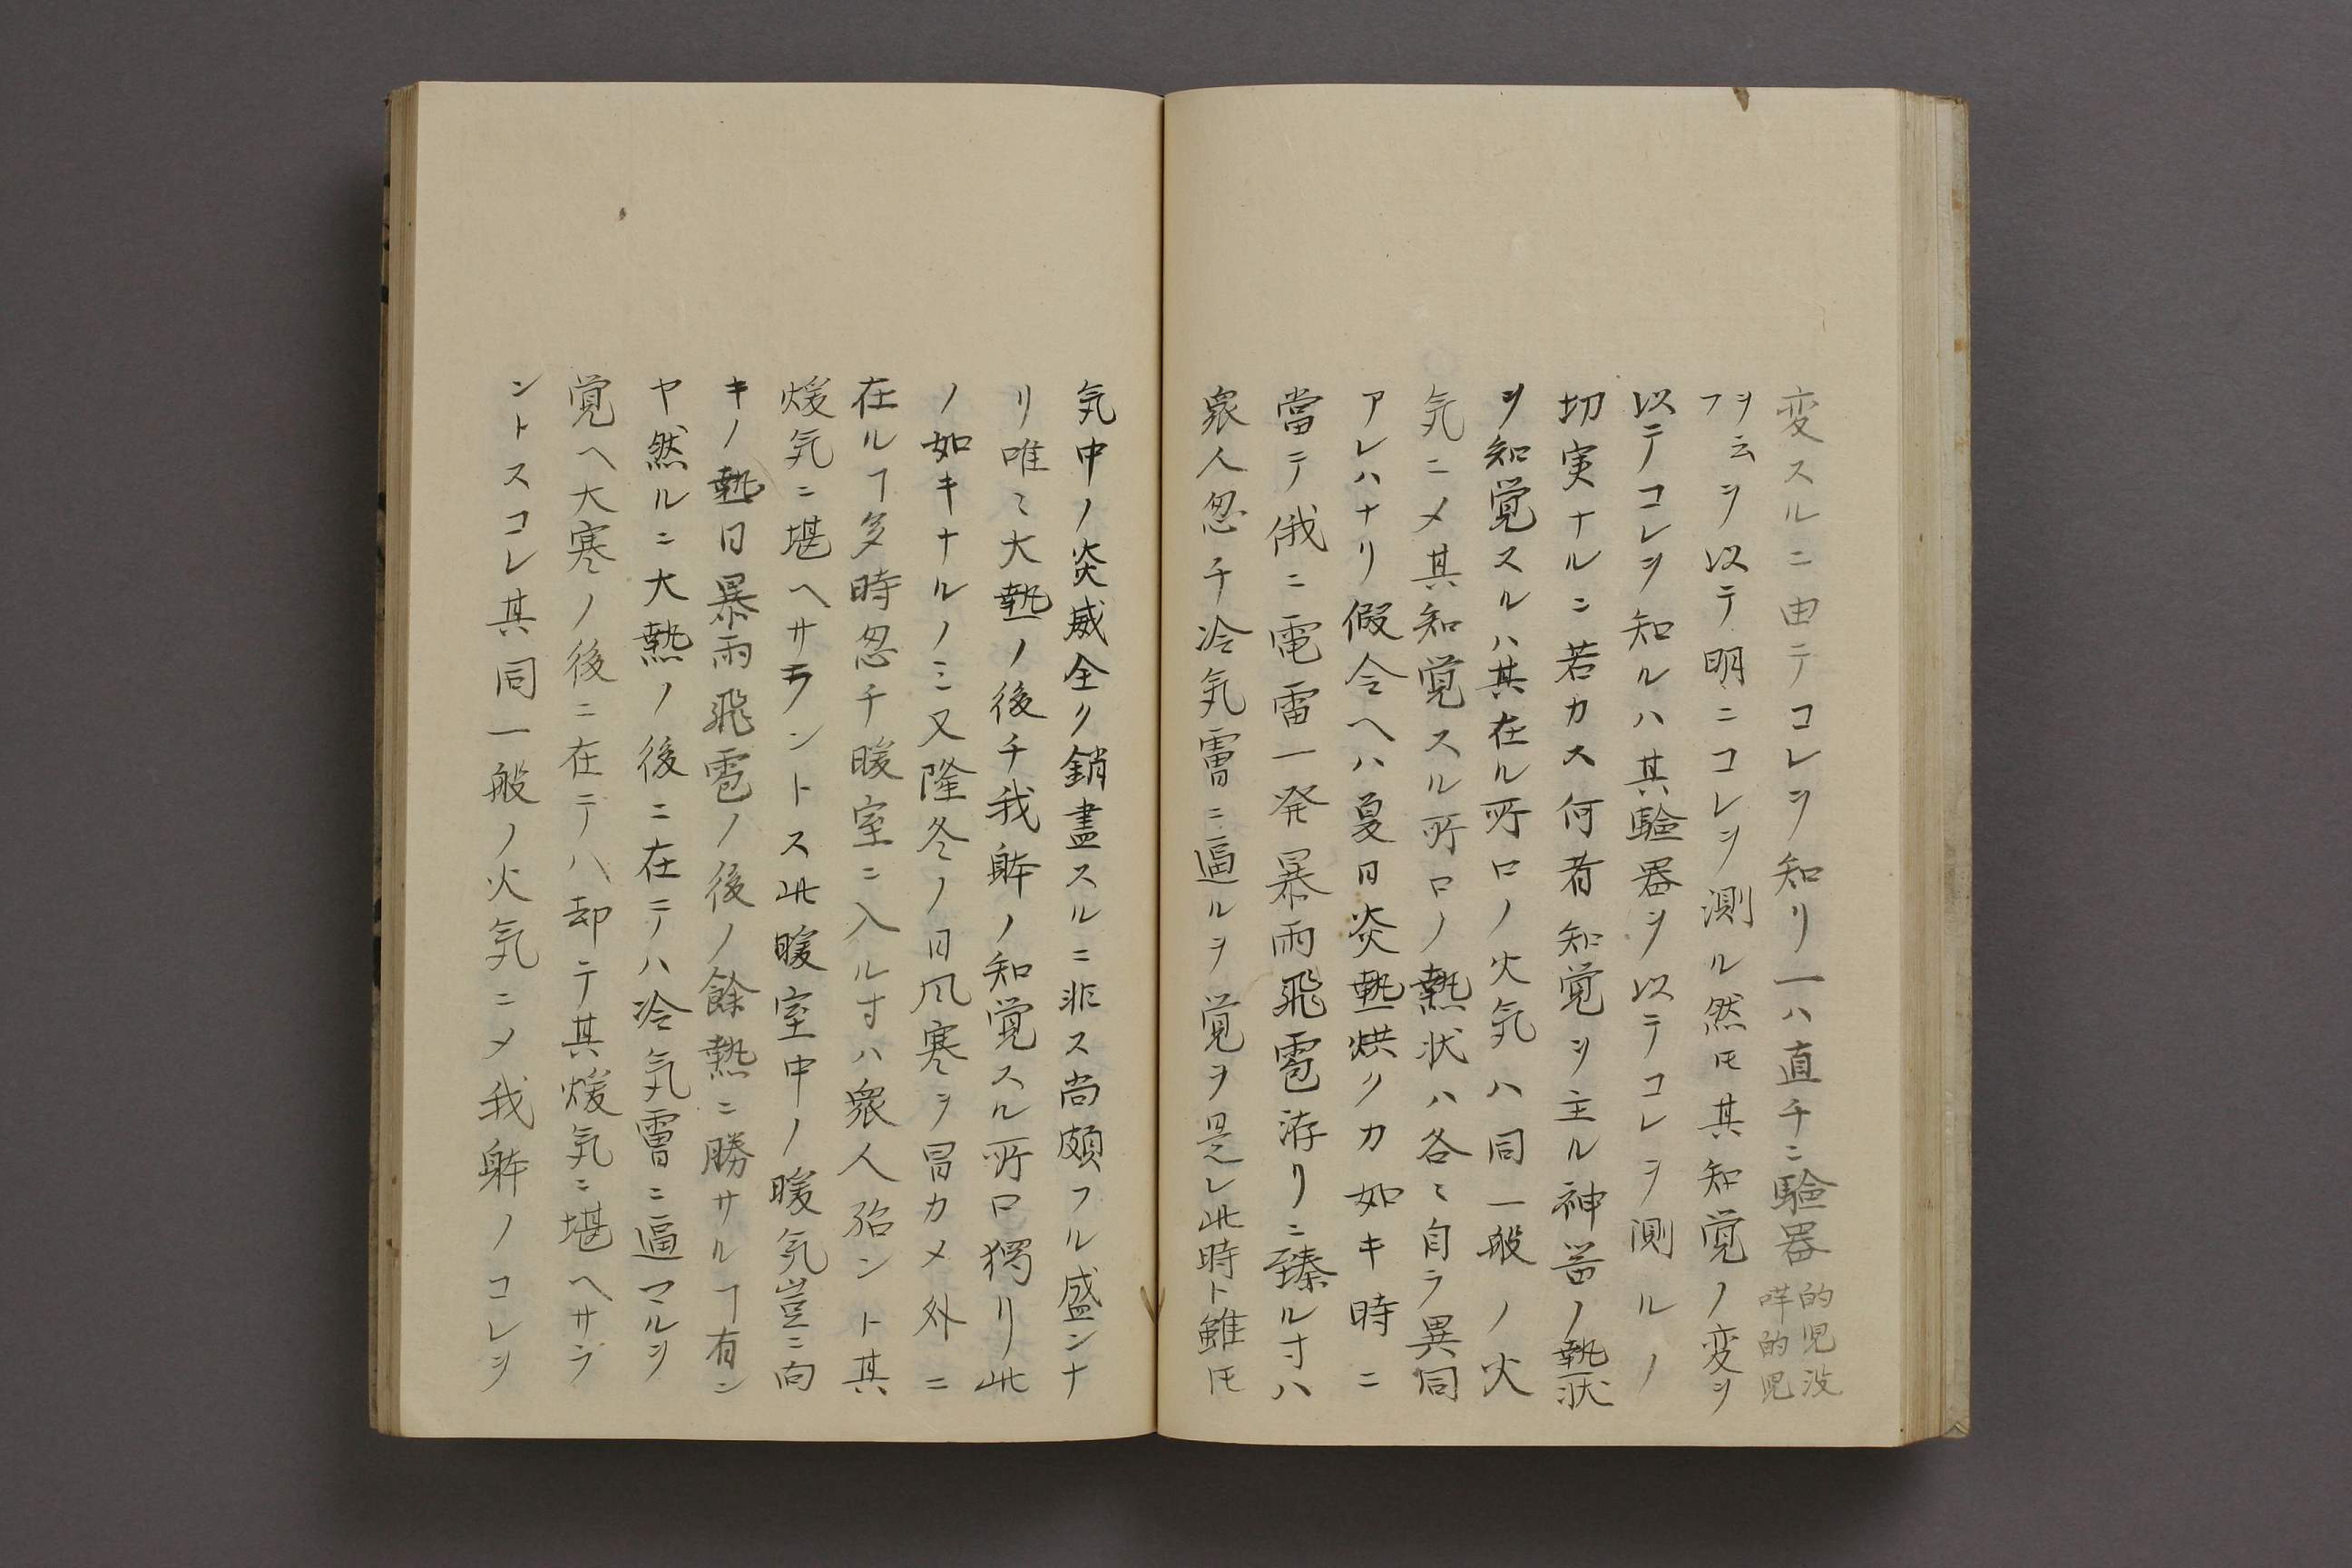 変スルニ由テコレヲ知リ一ハ直チニ驗器的児没咩的児
フヲ云ヲ以テ明ニコレヲ測ル然ㇳモ其知覚ノ変ヲ
以テコレヲ知ルハ其驗器ヲ以テコレヲ測ルノ
切実ナルニ若カス何者知覚ヲ主ル神器ノ熱状
ヲ知覚スルハ其在ル所ロノ火気ハ同一般ノ火
気ニメ其知覚スル所ロノ熱状ハ各〻自ラ異同
アレハナリ假令ヘハ夏日炎熱烘クカ如キ時ニ
當テ俄ニ電雷一発暴雨飛雹洊リニ臻ル寸ハ
衆人忽チ冷気膚ニ逼ルヲ覚ヲ是レ此時ト雖ㇳモ
気中ノ炎威全ク銷盡スルニ非ス尚頗フル盛ンナ
リ唯〻大熱ノ後チ我躰ノ知覚スル所ロ獨リ此
ノ如キナルノミ又隆冬ノ日风寒ヲ冒カメ外ニ
在ルヿ多時忽チ暖室ニ入ル寸ハ衆人殆ント其
煖気ニ堪ヘサラントス此暖室中ノ暖気豈ニ向
キノ熱日暴雨飛雹ノ後ノ餘熱ニ勝サルヿ有ン
ヤ然ルニ大熱ノ後ニ在テハ冷気膚ニ逼マルヲ
覚ヘ大寒ノ後ニ在テハ却テ其煖気ニ堪ヘサラ
ントスコレ其同一般ノ火気ニメ我躰ノコレヲ